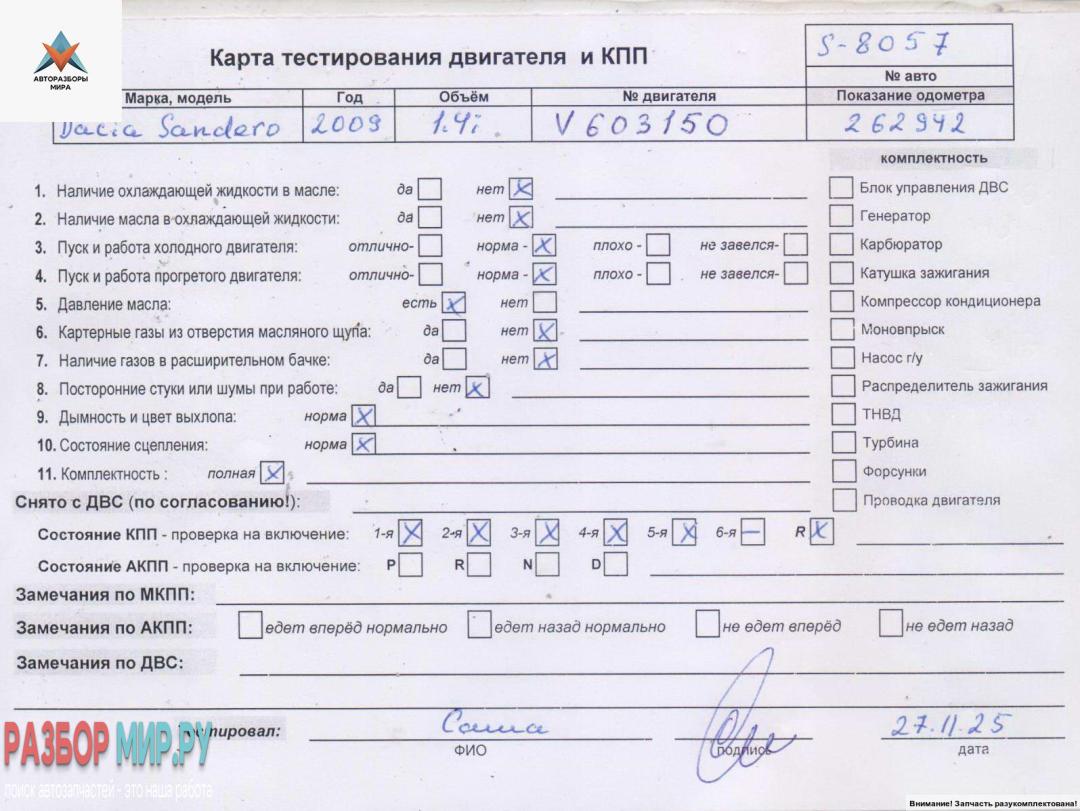 АВТОРАЗБОРЫ
МИРА
Карта тестирования двигателя и КПП
S-8057
№ авто
Марка, модель Год Объём № двигателя Показание одометра
Dacia Sandero 2009 1.4i. V603150 262942
комплектность
1. Наличие охлаждающей жидкости в масле: да нет X
Блок управления ДВС
2. Наличие масла в охлаждающей жидкости: да нет X
Генератор
3. Пуск и работа холодного двигателя: отлично- норма - X плохо - не завелся-
Карбюратор
4. Пуск и работа прогретого двигателя: отлично- норма - X плохо - не завелся-
Катушка зажигания
5. Давление масла: есть X нет
Компрессор кондиционера
6. Картерные газы из отверстия масляного щупа: да нет X
Моновпрыск
7. Наличие газов в расширительном бачке: да нет X
Насос г/у
8. Посторонние стуки или шумы при работе: да нет X
Распределитель зажигания
9. Дымность и цвет выхлопа: норма X
ТНВД
10. Состояние сцепления: норма X
Турбина
11. Комплектность : полная X
Форсунки
Снято с ДВС (по согласованию!):
Проводка двигателя
Состояние КПП - проверка на включение: 1-я X 2-я X 3-я X 4-я X 5-я X 6-я — R X
Состояние АКПП - проверка на включение: P R N D
Замечания по МКПП:
Замечания по АКПП: едет вперёд нормально едет назад нормально не едет вперёд не едет назад
Замечания по ДВС:
тировал: Саша 27.11.25
ФИО подпись дата
РАЗБОР МИР.РУ
поиск автозапчастей - это наша работа
Внимание! Запчасть разукомплектована!